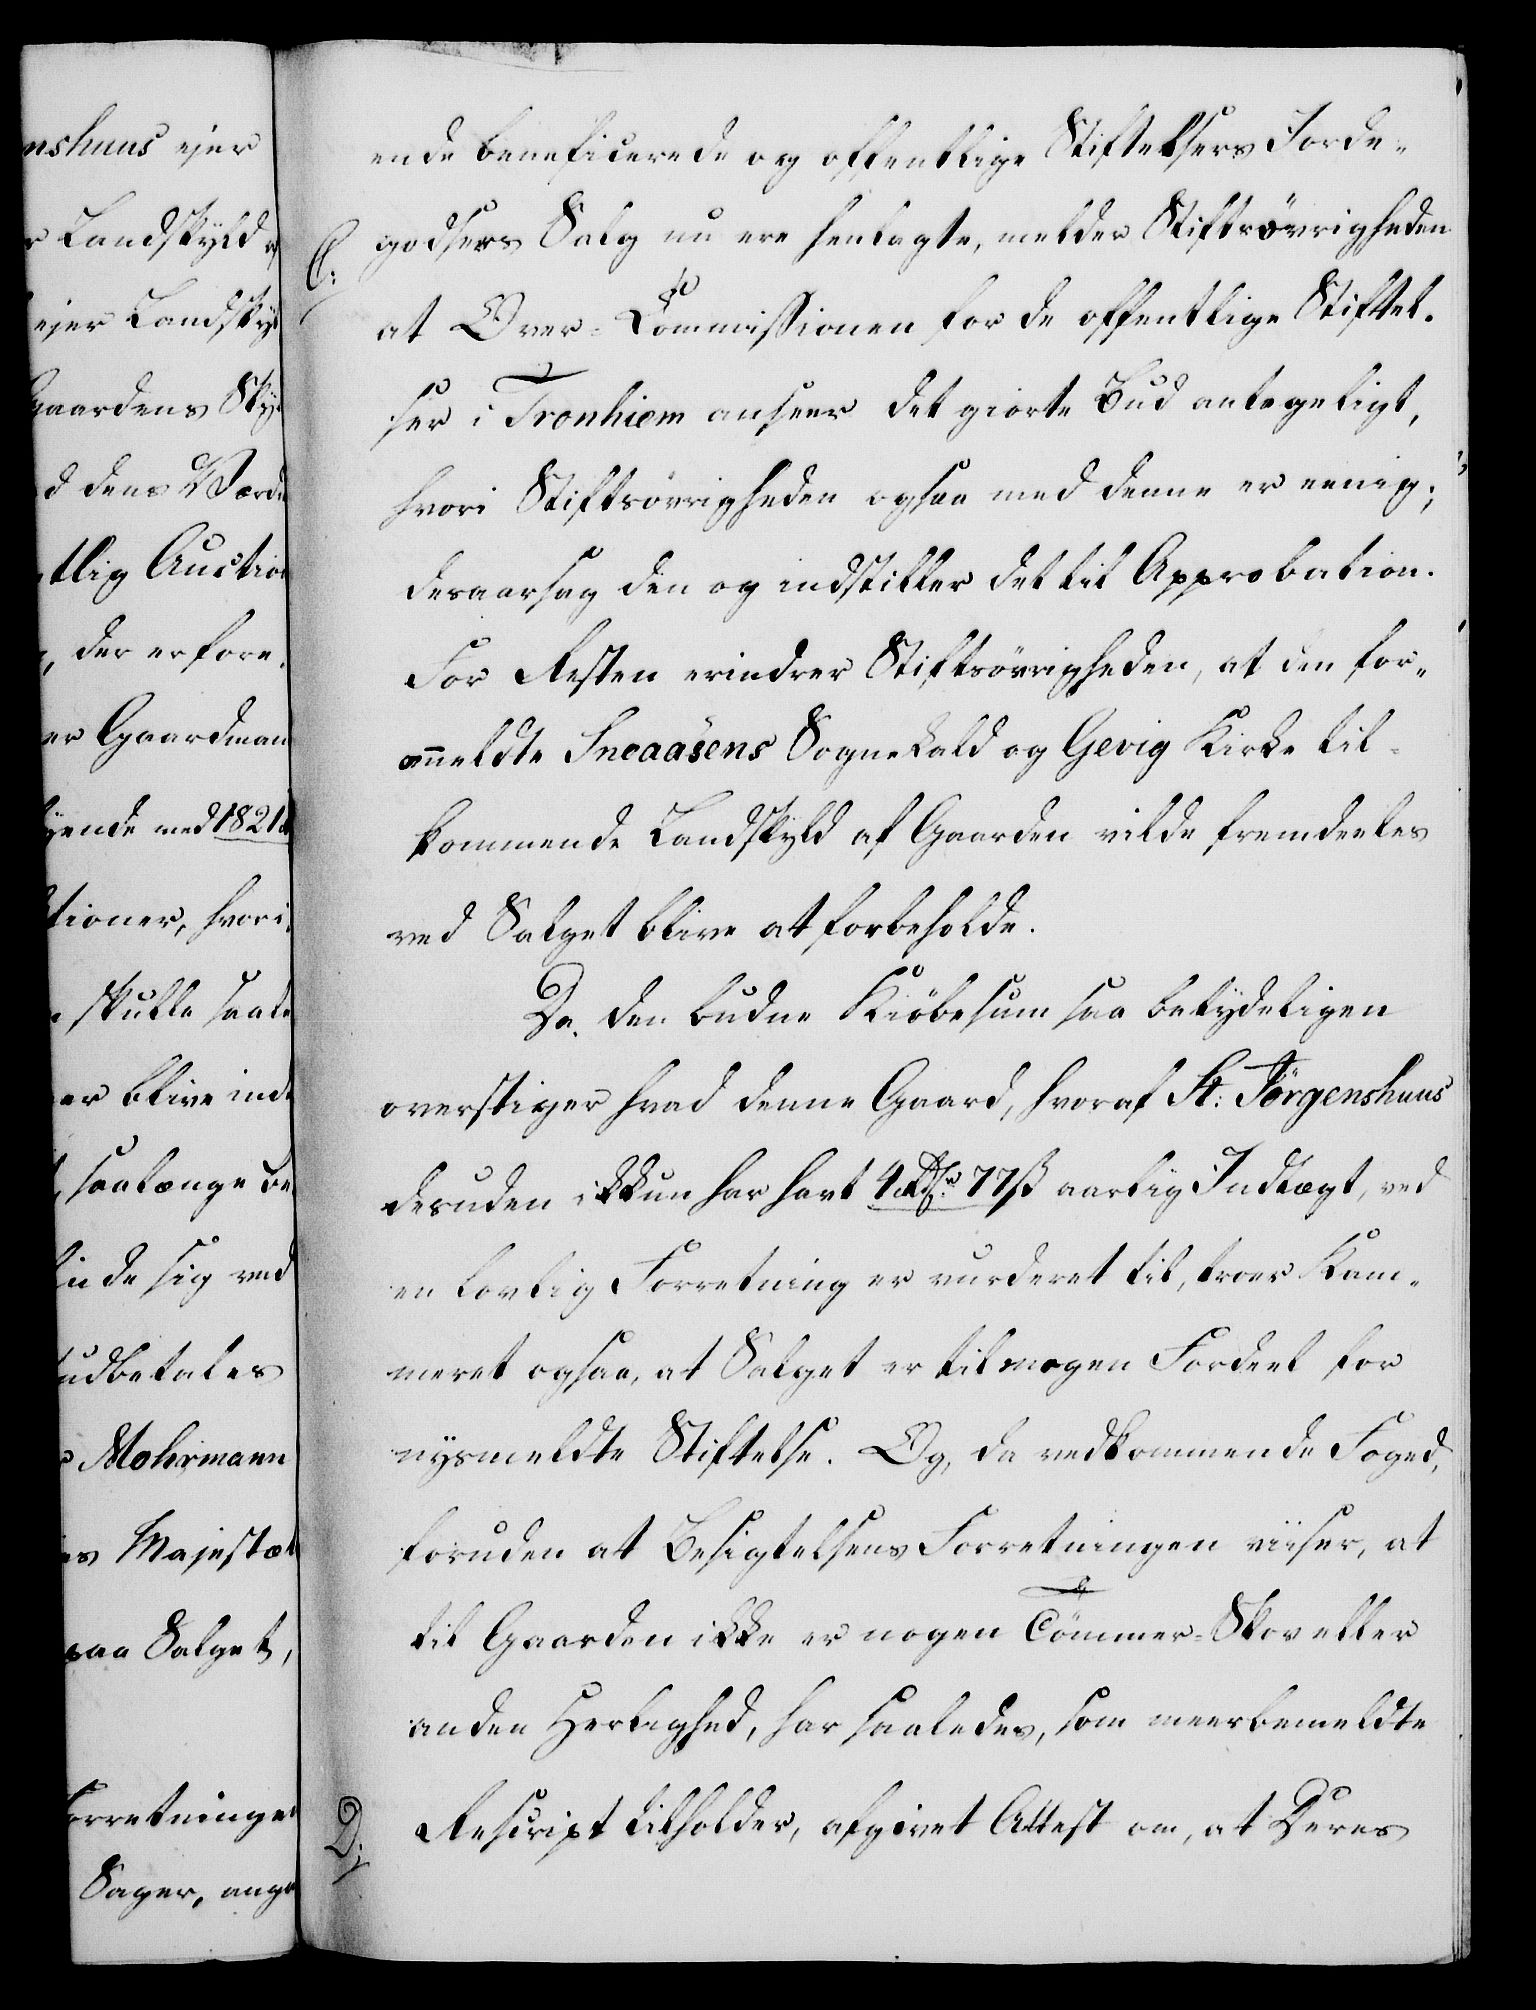 nshuus ejer
r Landskyld af
ejer Landskyl
Gaardens Sky
d dens Værdi
tlig Auction
, der erfore,
er Gaardman
gende med 1821 d
tioner, hvori,
skulle saale
er blive ind,
, saalænge be
finde sig ved
udbetales
Mohrmann
es Majestæt
paa Salget,
Forretninge
Sager, ang
ende beneficerede og offentlige Stiftelsers Jorde-
C: godsers Salg nu ere henlagte, melder Stiftsøvrigheden
at Over-Commissionen for de offentlige Stiftel-
ser i Tronhiem anseer det giorte Bud antageligt,
hvori Stiftsøvrigheden ogsaa med denne er eenig;
desaarsag den og indstiller det til Approbation.
For Resten erindrer Stiftsøvrigheden, at den for-
anmeldte Sneaasens Sognekald og Gevig Kirke til-
kommende Landskyld af Gaarden vilde fremdeeles
ved Salget blive at forbeholde.
Da den budne Kiöbesum saa betydeligen
overstiger hvad denne Gaard, hvoraf St: Jörgenshuus
desuden ikkun har havt 4 Rdlr 77 ß aarlig Indtægt, ved
en lovlig Forretning er vurderet til, troer Kam-
meret ogsaa, at Salget er til megen Fordeel for
nysmeldte Stiftelse. Og, da vedkommende Foged,
foruden at Besigtelsens Forretningen viiser, at
til Gaarden ikke er nogen Tömmer-Skov eller
anden Herlighed, har saaledes, som meerbemeldte
D: Rescript tilholder, afgivet Attest om, at Deres